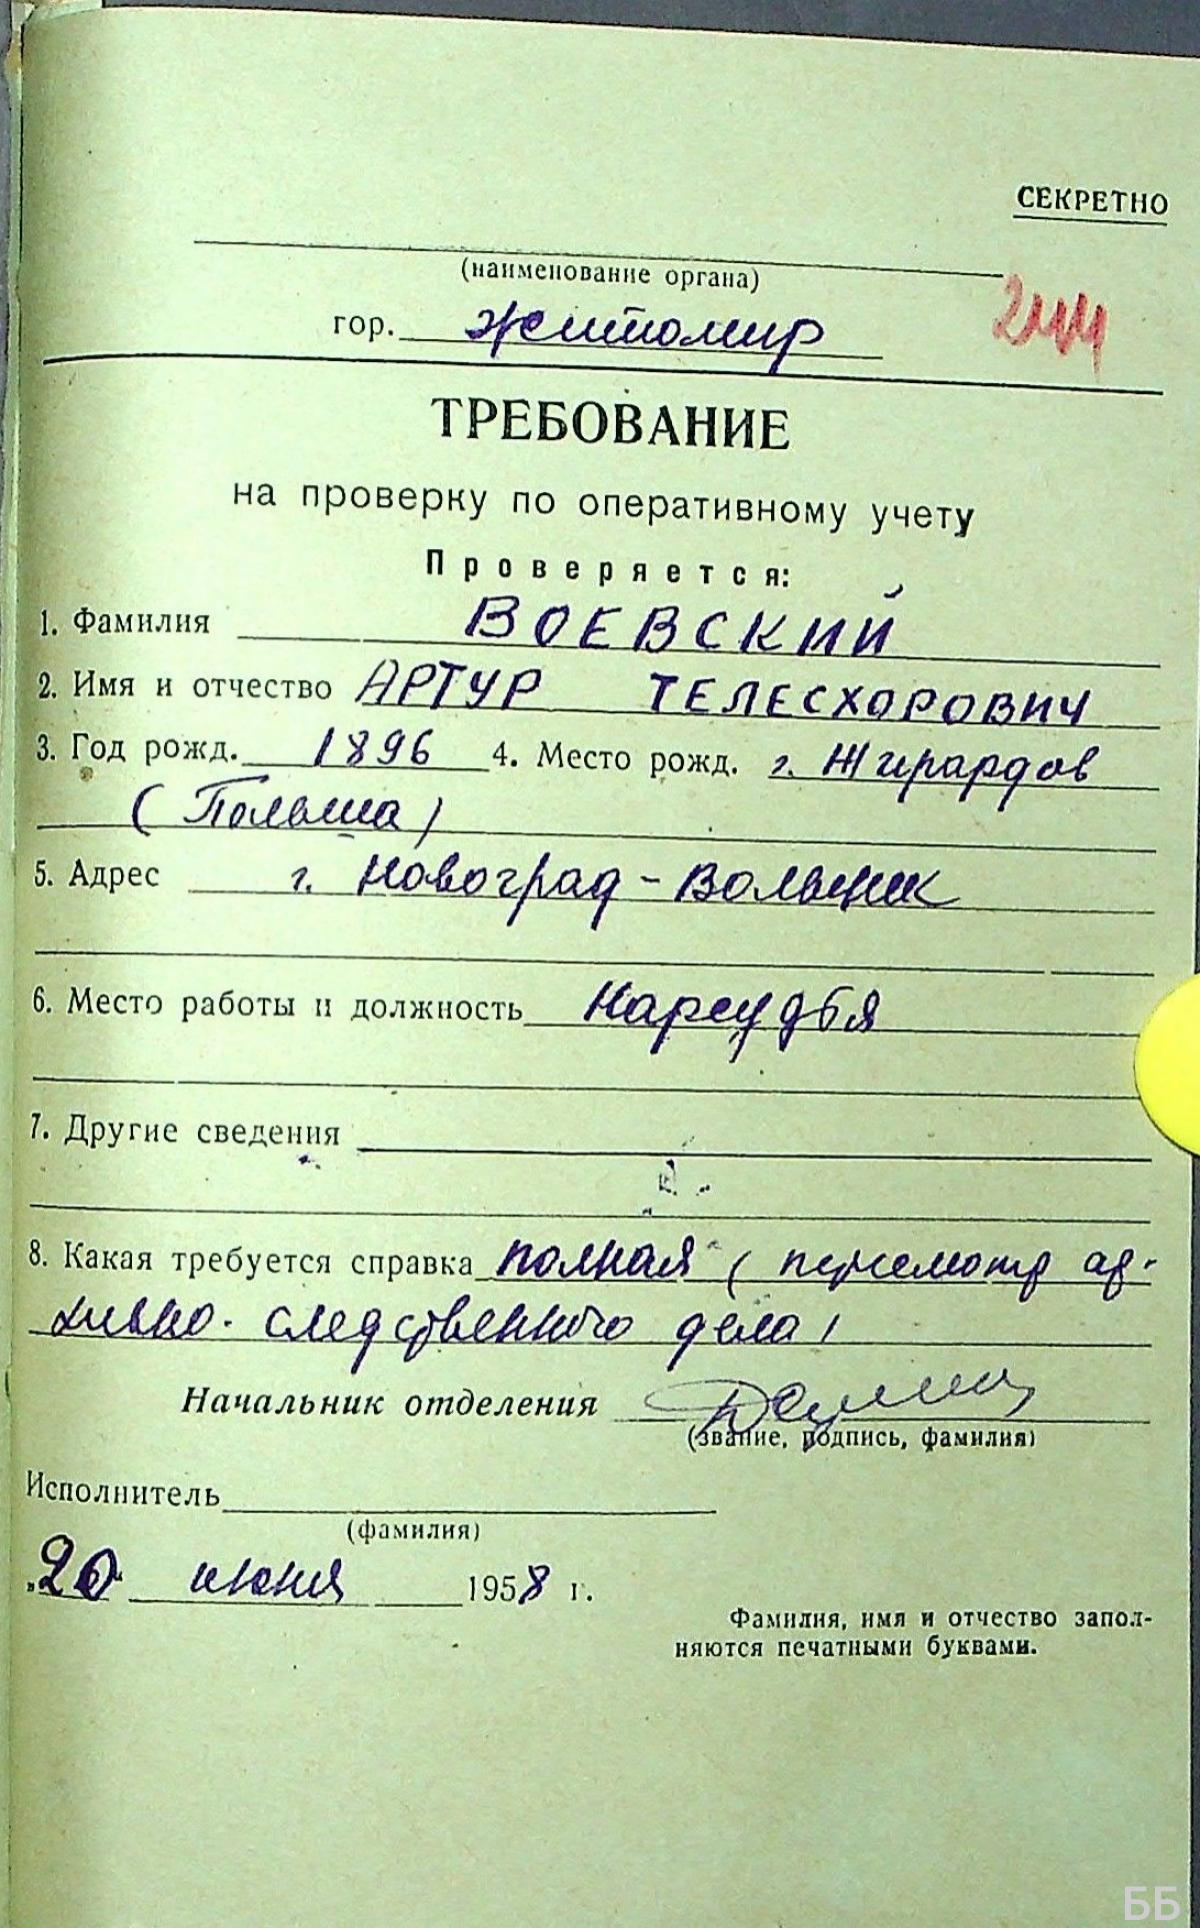 СЕКРЕТНО
(наименование органа)
244
гор. Житомир
ТРЕБОВАНИЕ
на проверку по оперативному учету
Проверяется:
1. Фамилия ВОЕВСКИЙ
2. Имя и отчество АРТУР ТЕЛЕСХОРОВИЧ
3. Год рожд. 1896 4. Место рожд. г. Жирардов
(Польша)
5. Адрес г. Новоград-Волынск
6. Место работы и должность Нарсудья
7. Другие сведения
8. Какая требуется справка полная (пересмотр ар-
хивно-следственного дела)
Начальник отделения
(звание, подпись, фамилия)
Исполнитель
(фамилия)
„20“ июня 1958 г.
Фамилия, имя и отчество запол-
няются печатными буквами.
ББ